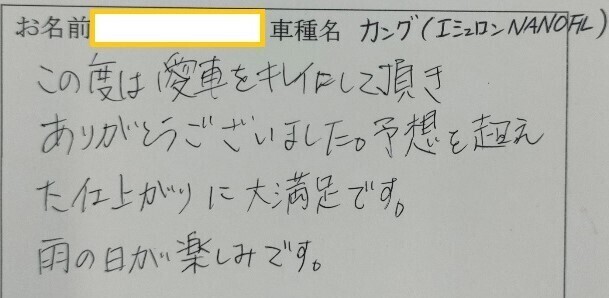 お名前 車種名 カングー(エシュロンNANOFIL)
この度は愛車をキレイにして頂き
ありがとうございました。予想を超え
た仕上がりに大満足です。
雨の日が楽しみです。